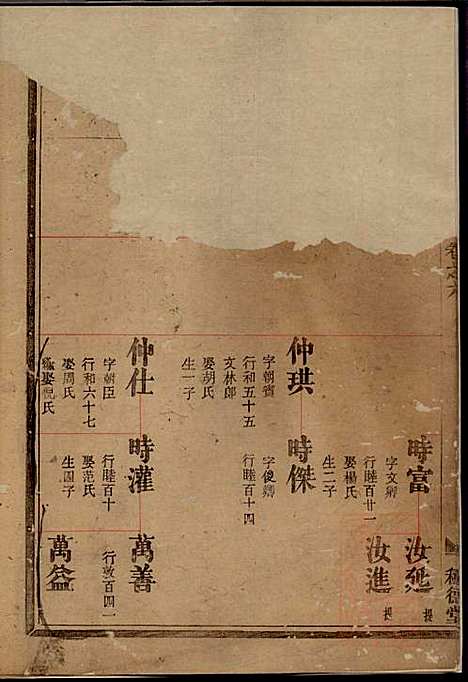 卷之六
種德堂
時富
字文卿
行睦百廿一
娶楊氏
生二子
汝延
提
汝進
提
仲珙
字朝賓
行和五十五
文林郎
娶胡氏
生一子
時傑
字俊卿
行睦百十四
仲仕
字朝臣
行和六十七
娶周氏
繼娶倪氏
時灌
行睦百十
娶范氏
生四子
萬善
行敦百四一
萬益